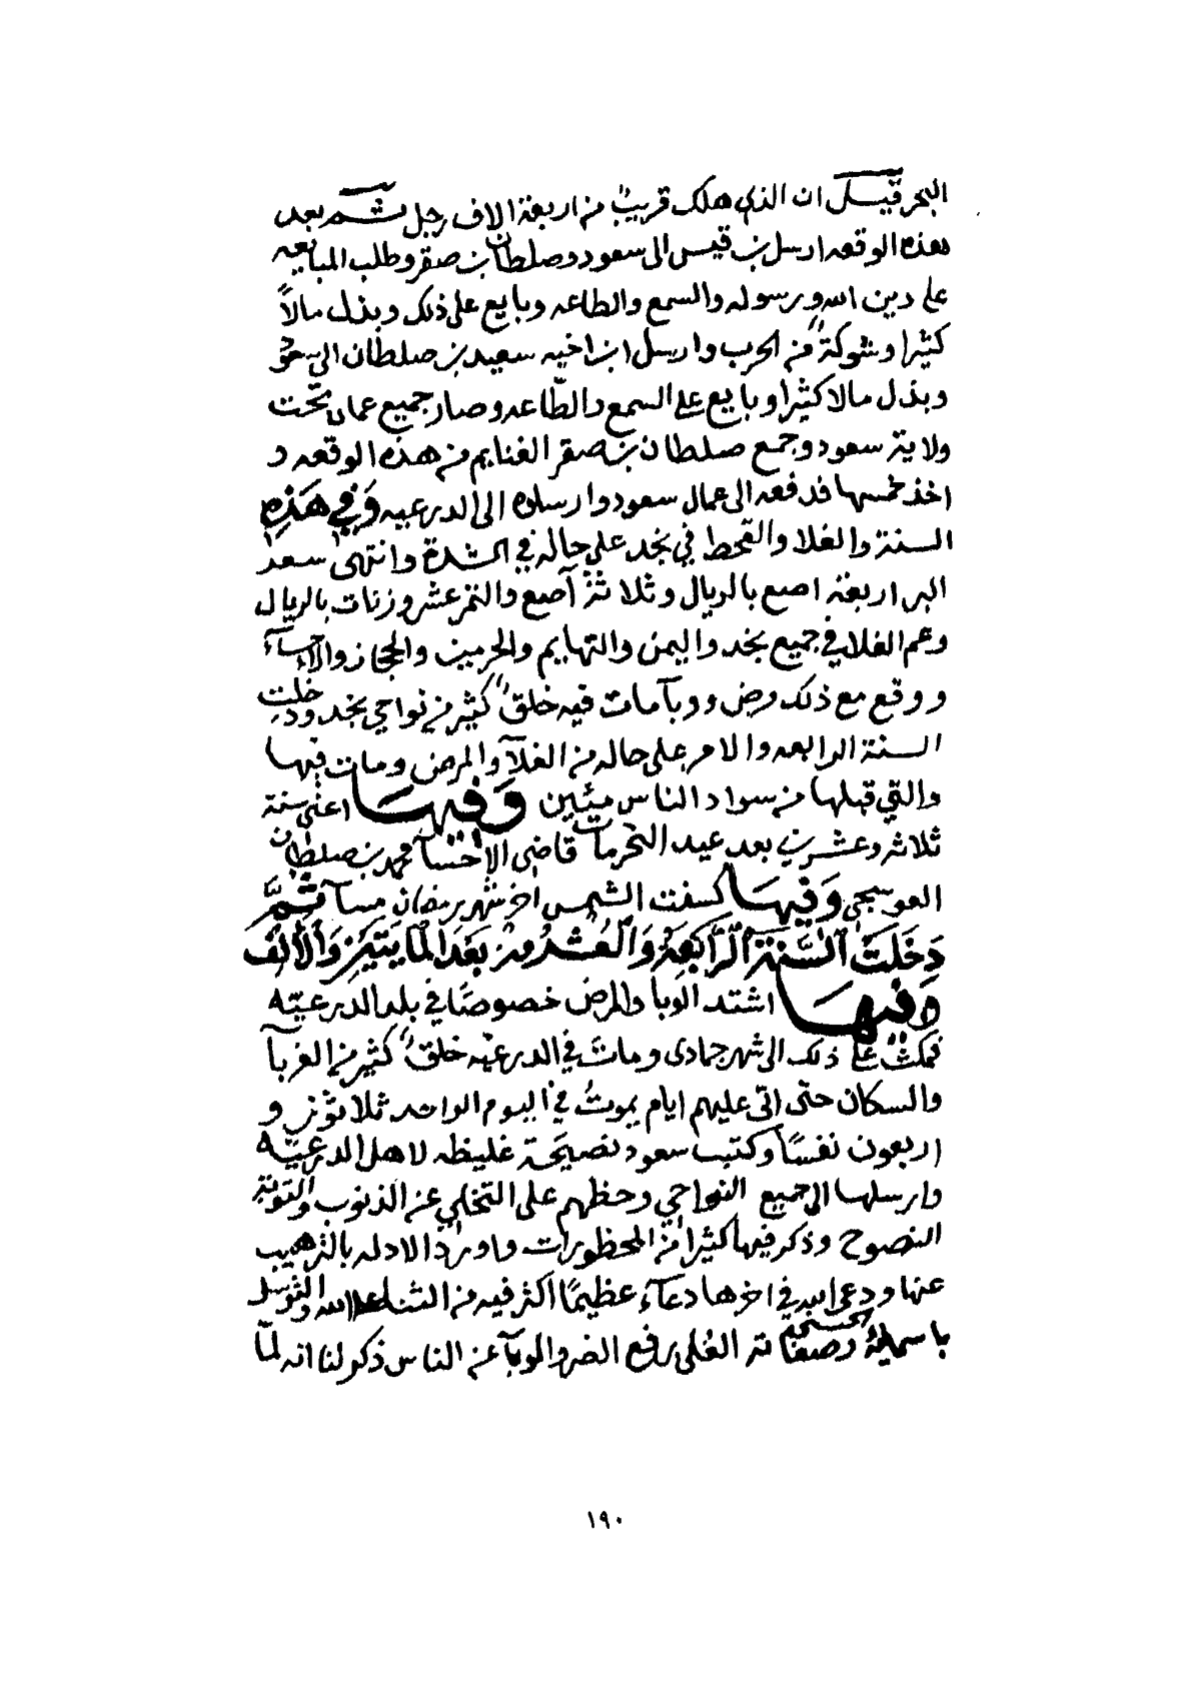 البحر قيل ان الذي هلك قريبٌ من اربعة الاف رجل ثم بعد
هذه الوقعه ارسل بن قيس الى سعود وصلطان بن صقر وطلب المبايعه
على دين الله ورسوله والسمع والطاعه وبايع على ذلك وبذل مالاً
كثيرا وشوكةً من الحرب وارسل ابن اخيه سعيد بن صلطان الى سعود
وبذل مالا كثيرا وبايع على السمع والطّاعه وصار جميع عمان تحت
ولاية سعود وجمع صلطان بن صقر الغنايم من هذه الوقعه و
اخذ خمسها فدفعه الى عمال سعود وارسلوه الى الدرعيه وَفي هَذِهِ
السنة والغلا والقحط في نجد على حاله في الشدة وانتهى سعر
البر اربعة اصع بالريال وثلاثة آصع والتمر عشر وزنات بالريال
وعم الغلا في جميع نجد واليمن والتهايم والحرمين والحجاز والاحساء
ووقع مع ذلك مرض ووبآ مات فيه خلقٌ كثير من نواحي نجد ودخلت
السنة الرابعه والامر على حاله من الغلآ والمرض ومات فيها
والتي قبلها من سواد الناس ميئين وَفيهَا اعني سنة
ثلاث وعشرين بعد عيد النحر مات قاضي الاحسآ محمد بن صلطان
العوسجي وَفيهَا كسفت الشمس اخر شهر رمضان مسآ ثمَّ
دَخَلَتْ السَّنَة الرَّابعَة وَالعُشْرُون بَعَدَ المَايَتَيْن وَالأَلِفْ
وفيهَا اشتد الوبا والمرض خصوصًا في بلد الدرعيّه
فمكث على ذلك الى شهر جمادى ومات في الدرعيّه خلقٌ كثير من الغربآ
والسكان حتى اتى عليهم ايام يموتُ في اليوم الواحد ثلاثون و
اربعون نفسًا وكتب سعود نصيحَة غليظه لاهل الدرعيّه
وارسلها الى جميع النواحي وحظهم على التخلي عن الذنوب والتوبة
النصوح وذكر فيها كثيرا من المحظورات واورد الادله بالترهيب
عنها ودعى الله في اخرها دعآءً عظيمًا اكثر فيه من الثنا على الله والتوسل
باسمايهِ الحسنى وصفاته العُلى برفع الضر والوبآ عن الناس ذكر لنا انه لمّا
١٩٠